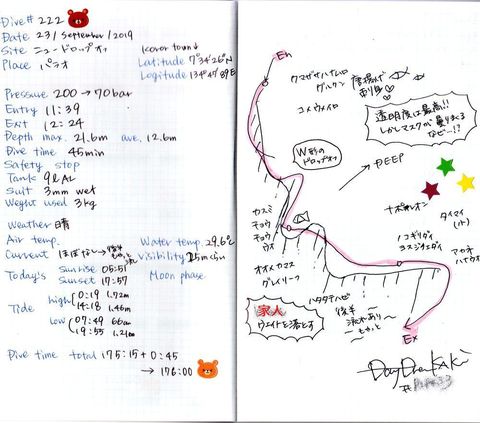 Dive# 222
Date 23/September/2019
Site ニュードロップオフ
Place パラオ
(cover town↓
Latitude 7°34'26"N
Logitude 134°
Pressure 200 → 70bar
Entry 11:39
Exit 12:24
Depth max. 21.6m ave. 12.6m
Dive time 45min
Safety stop
Tank 9ℓ AL
Suit 3mm wet
Weght used 3kg
Weather 晴
Air temp.
Water temp. 29.6℃
Current ほぼない→後半
visibility 25mくらい
Today's
Sunrise 05:51
Sunset 17:57
Moon phase
Tide
high 0:19 1.72m
14:18 1.46m
low 07:49 66cm
19:55 1.21m
Dive time total 175:15 + 0:45
→ 176:00
En
クマザサハナムロ
グルクン
唐揚げ
ユメウメイロ
透明度は最高!!
しかしマスクが曇りまくる
なぜー!?
W形の
ドロップオフ
→ DEEP
カスミ
チョウ
チョウ
ウオ
ナポレオン
タイマイ
ノコギリダイ
ヨスジフエダイ
オオカマス
グレイリーフ
マダラ
ハタタテハゼ
家人
ウエイトを落とす
後半
流れあり
Ex